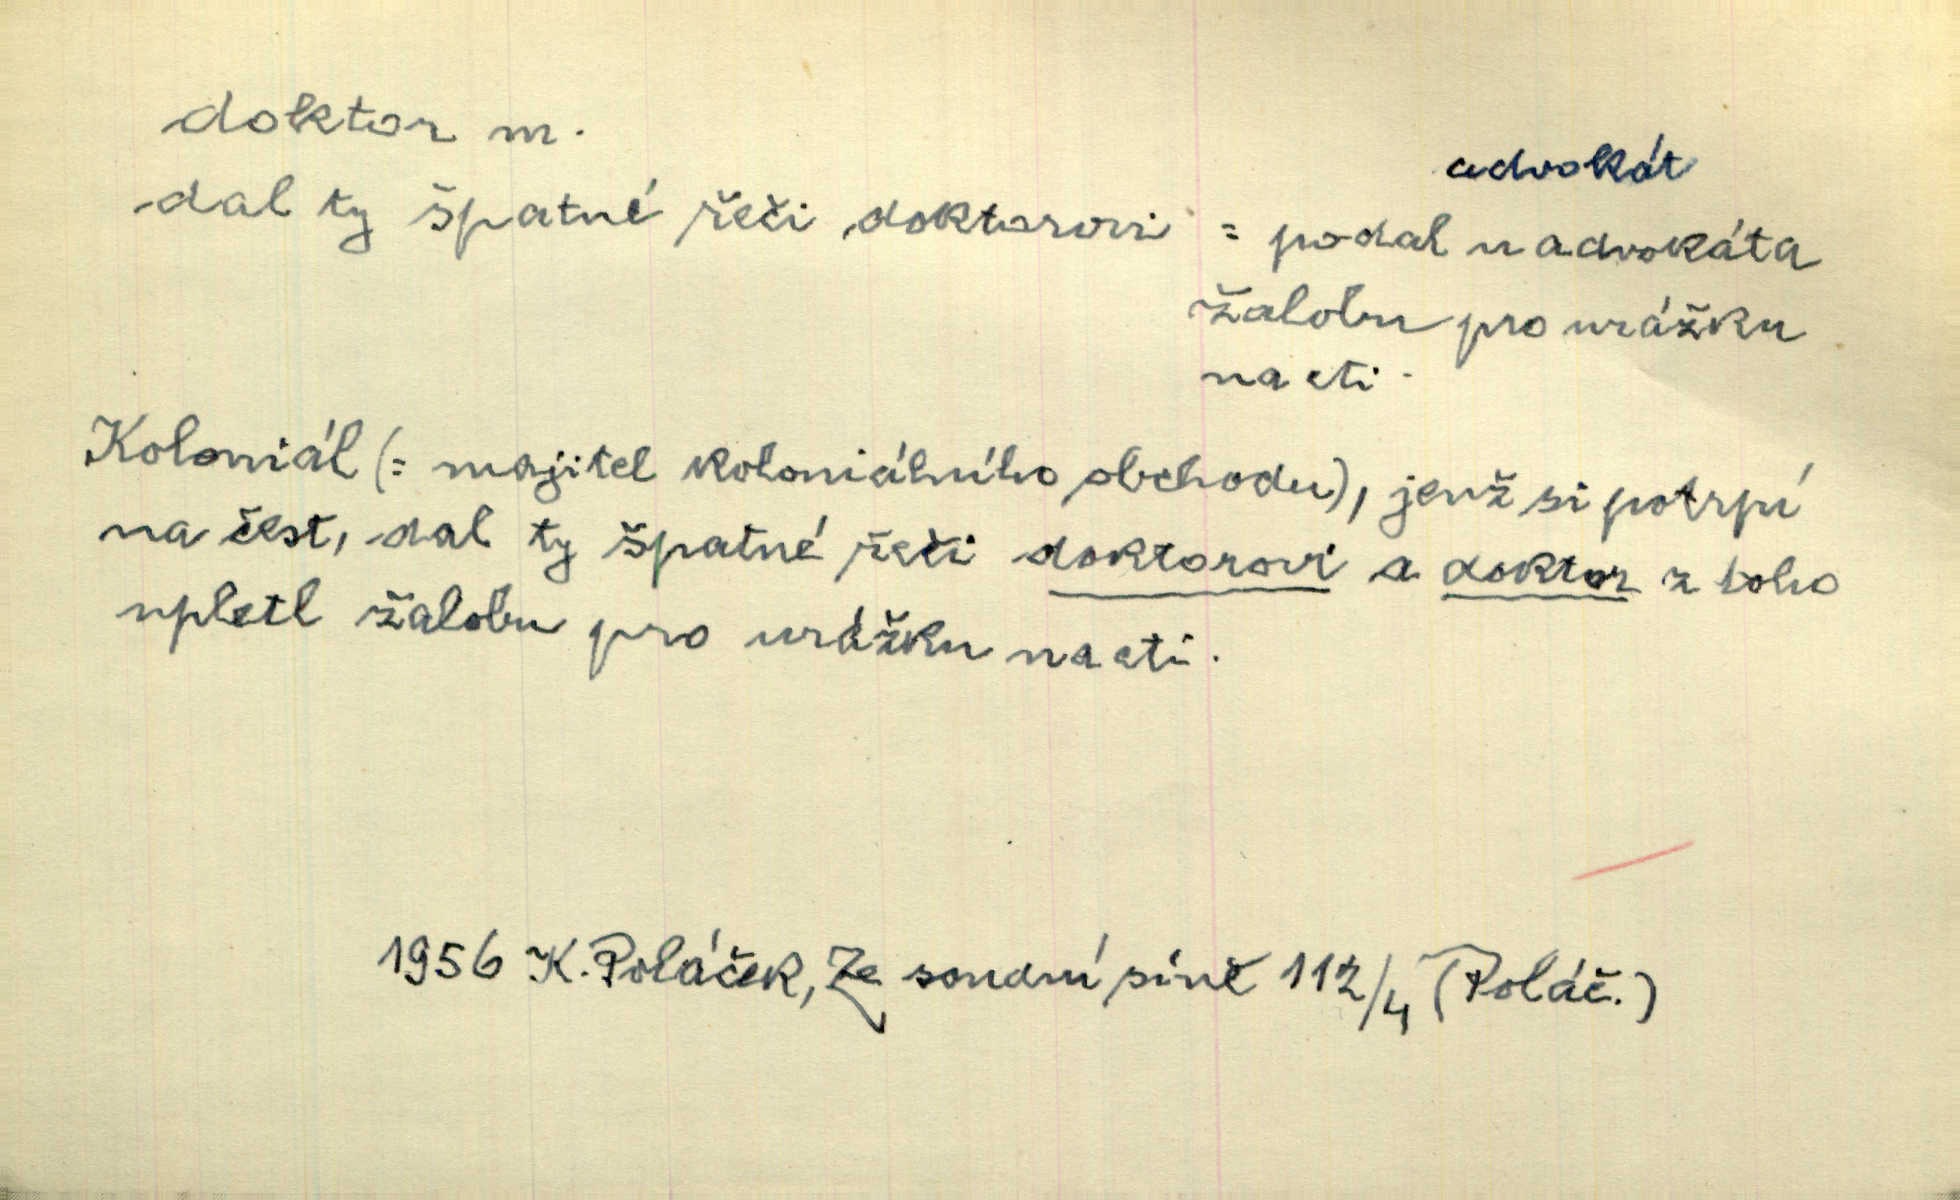 doktor m.
advokát
dal ty špatné řeči doktorovi = podal u advokáta
žalobu pro urážku
na cti.
Koloniál (= majitel koloniálního obchodu), jenž si potrpí
na čest, dal ty špatné řeči doktorovi a doktor z toho
upletl žalobu pro urážku na cti.
1956 K. Poláček, Ze soudní síně 112/4 (Poláč.)